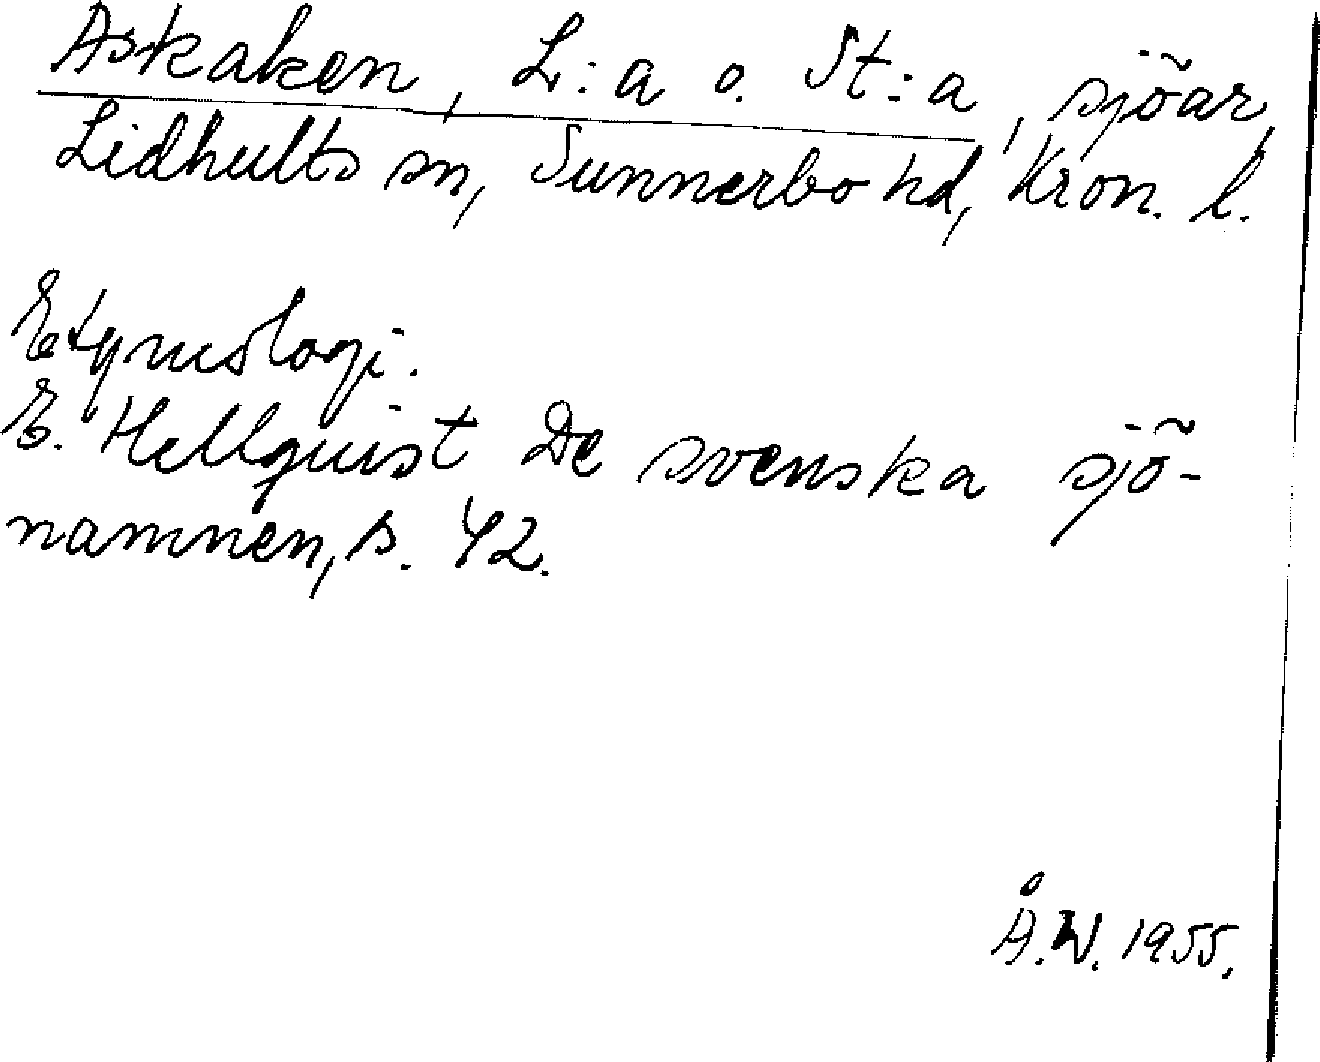 Askaken, L:a o. St:a, sjöar,
Lidhults sn, Sunnerbo hd, Kron. l.
Etymologi.
E. Hellquist De svenska sjö-
namnen, s. 42.
Å.W. 1955.